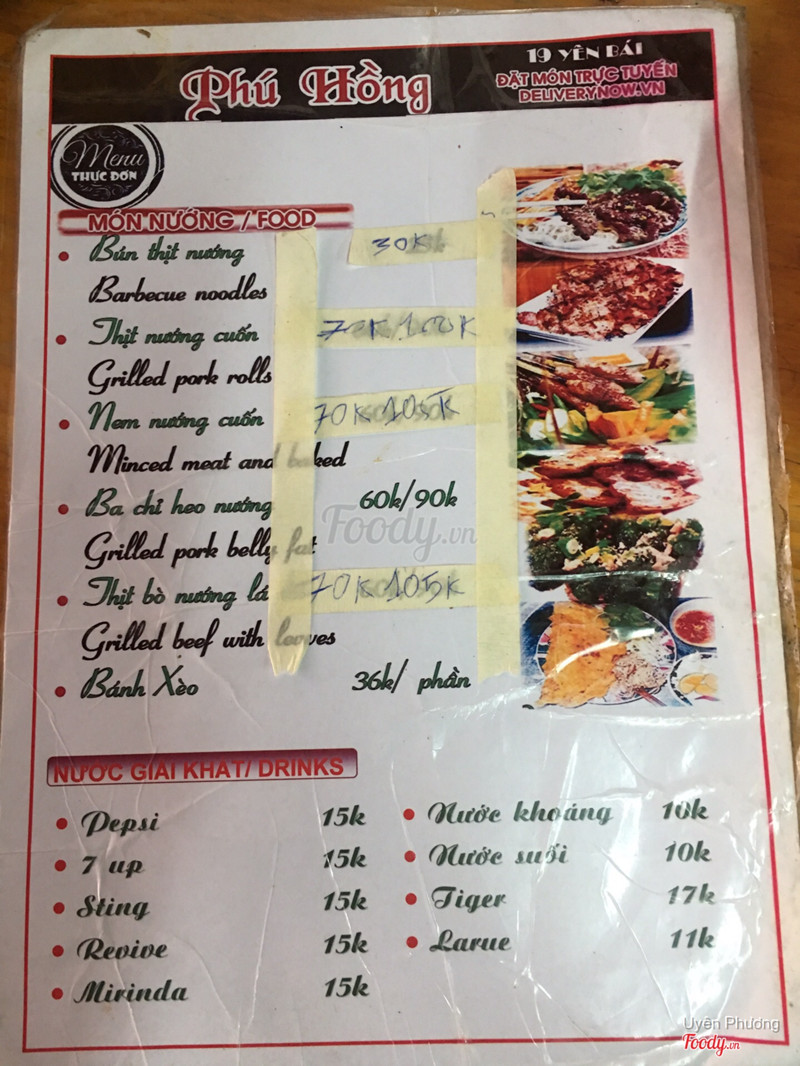 Phú Hồng
19 YÊN BÁI
ĐẶT MÓN TRỰC TUYẾN
DELIVERYNOW.VN
Menu
THỰC ĐƠN
MÓN NƯỚNG / FOOD
Bún thịt nướng 30K
Barbecue noodles
Thịt nướng cuốn
Grilled pork rolls
Nem nướng cuốn 70K 105K
Minced meat and baked
Ba chỉ heo nướng 60k/90k
Grilled pork belly fat
Thịt bò nướng lá 70K 105K
Grilled beef with leaves
Bánh Xèo 36k/ phần
Foody.vn
NƯỚC GIẢI KHÁT/ DRINKS
Pepsi 15k
7 up 15k
Sting 15k
Revive 15k
Mirinda 15k
Nước khoáng 10k
Nước suối 10k
Tiger 17k
Larue 11k
Uyên Phương
Foody.vn